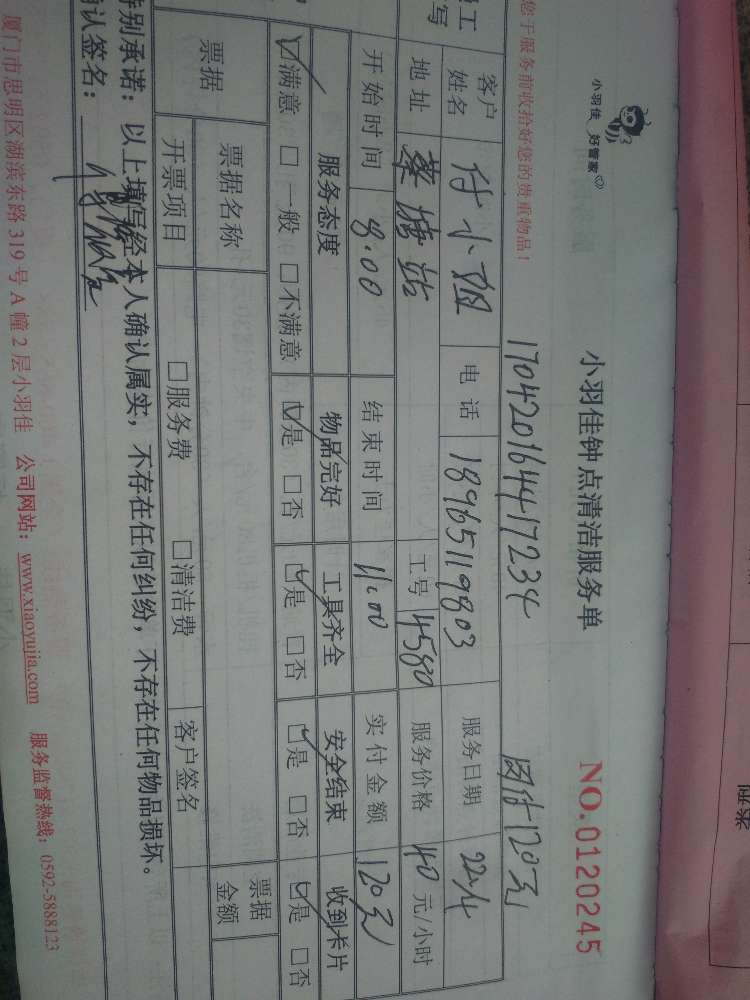 小羽佳 好管家
小羽佳钟点清洁服务单
NO.0120245
170420164417234
团付120元
您于服务前收拾好您的贵重物品！
客户姓名 付小姐 电话 18965119803 服务日期 22/4
地址 蔡塘站 工号 4580 服务价格 40元/小时
开始时间 8:00 结束时间 11:00 实付金额 120元
服务态度 物品完好 工具齐全 安全结束 收到卡片
☑满意 □一般 □不满意 ☑是 □否 ☑是 □否 ☑是 □否 ☑是 □否
票据 票据名称 票据金额
开票项目 □服务费 □清洁费 客户签名
特别承诺：以上填写经本人确认属实，不存在任何纠纷，不存在任何物品损坏。
确认签名：
厦门市思明区湖滨东路319号A幢2层小羽佳 公司网站：www.xiaoyujia.com 服务监督热线：0592-5888123